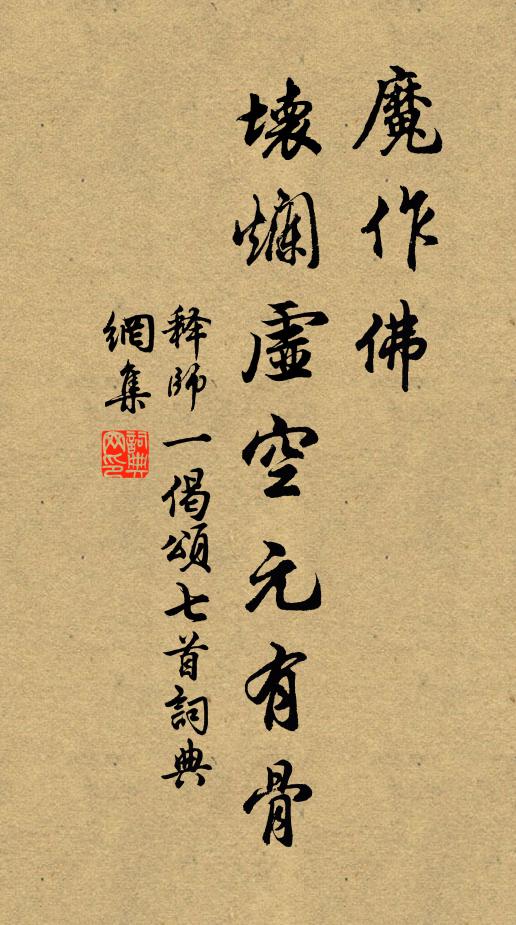 魔作佛
壊爛虛空元有骨
释師一偈頌七首詞典
網集
詞典
网印